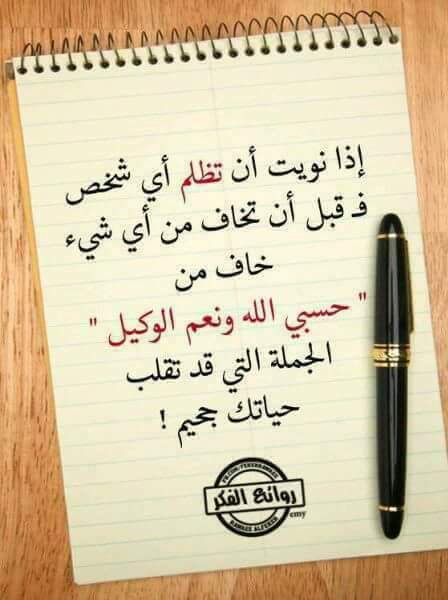 إذا نويت أن تظلم أي شخص
فـ قبل أن تخاف من أي شيء
خاف من
" حسبي الله ونعم الوكيل "
الجملة التي قد تقلب
حياتك جحيم !
روائع الفكر
emy
RAWAEE ALFEKER